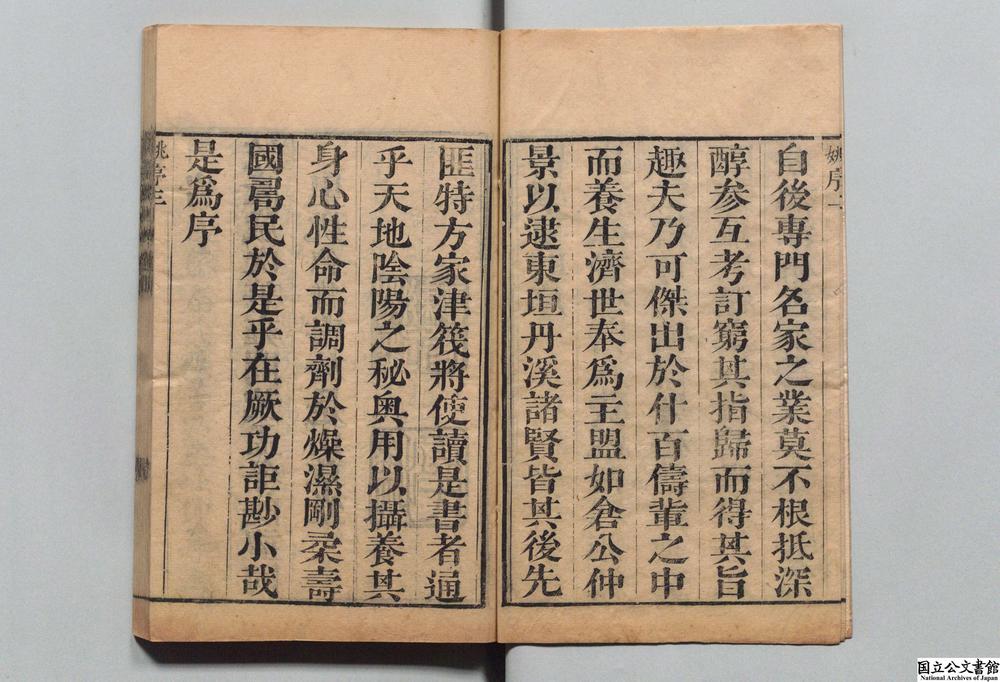 自後專門名家之業莫不根抵深
醇参互考訂窮其指歸而得其旨
趣夫乃可傑出於什百儔輩之中
而養生濟世奉爲主盟如倉公仲
景以逮東垣丹溪諸賢皆其後先
匪特方家津筏將使讀是書者通
乎天地陰陽之秘奥用以攝養其
身心性命而調劑於燥濕剛柔壽
國壽民於是乎在厥功詎尠小哉
是爲序
姚序
姚序三
国立公文書館
National Archives of Japan